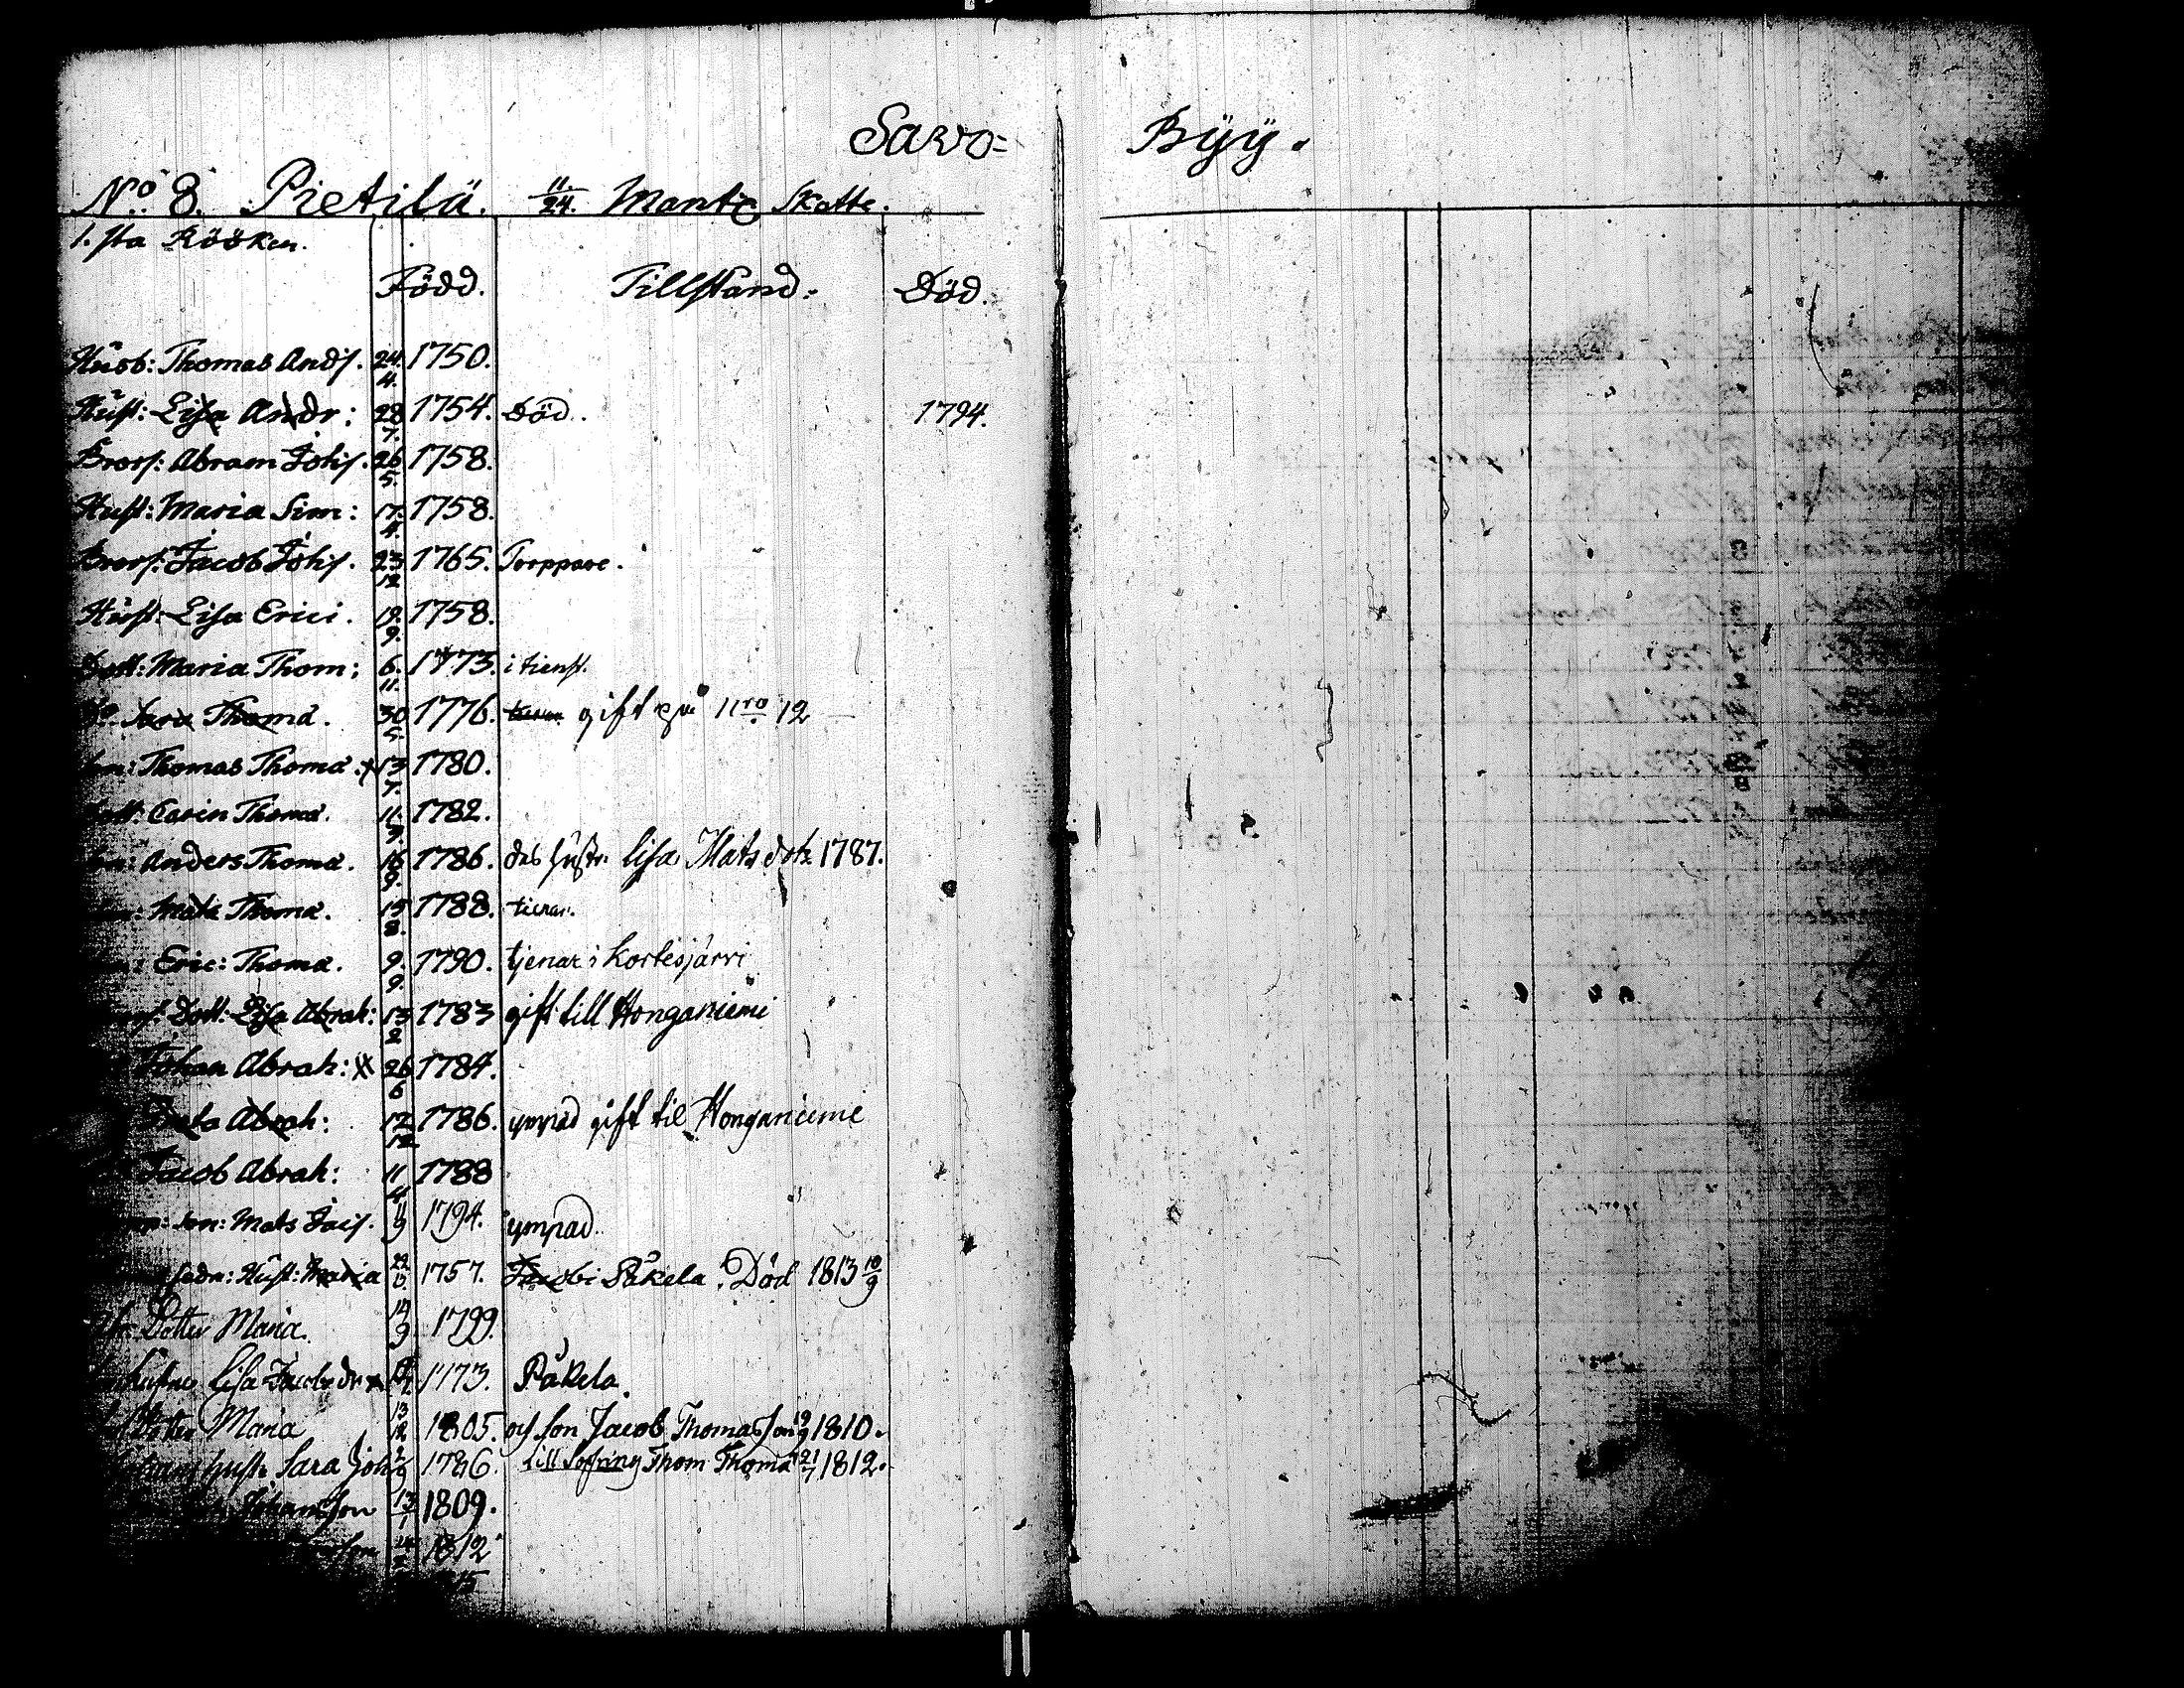 Savo= Byy.
No. 8. Pietilä. 11/24. Mantl Skatte.
1. sta Rööken.
Född. Tillstand: Död.
Husb: Thomas Ands. 24/4. 1750.
Hust: Lisa Andr: 28/7. 1754. Död. 1794.
Brors: Abram Johs. 26/5. 1758.
Hust: Maria Sim: 17./4. 1758.
Brors: Jacob Johs. 23/12 1765. Torppare.
Hust: Lisa Erici. 19./9. 1758.
Dott: Maria Thom: 6./11. 1773. i tienst.
Do. Sara Thomæ. 30/5. 1776. gift på No 12
Son: Thomas Thomæ. x 13/7. 1780.
Dott: Carin Thomæ. 11./7. 1782.
Son: Anders Thomæ. 16/9. 1786. das hustr. Lisa Mats dotr 1787.
Son: Mats Thomæ. 15/8. 1788. tienar.
Son: Eric: Thomæ. 9/9. 1790. tjenar i Kortesjärvi
Dott: Lisa Abrah: 13/2 1783 gift till Honganiemi
Johan Abrah: x 26/6 1784.
Greta Abrah: 12/12 1786. ympad gift til Honganiemi
Jacob Abrah: 11/4 1788
son: Mats Jacs. 11/9 1794. ympad.
Hust: Maria 1757. Jacobi Påkela. Död 1813 10/9
Dotter Maria. 14/9 1799.
hustru Lisa Jacobs dr x 1773. Påkela.
Dotter Maria 13/12 1805. och son Jacob Thomasson 19/9 1810.
hustr. Sara Joh: 2/9 1786. till Thom Thomæ 21/7 1812.
Johansson 13/1 1809.
son 1812
15